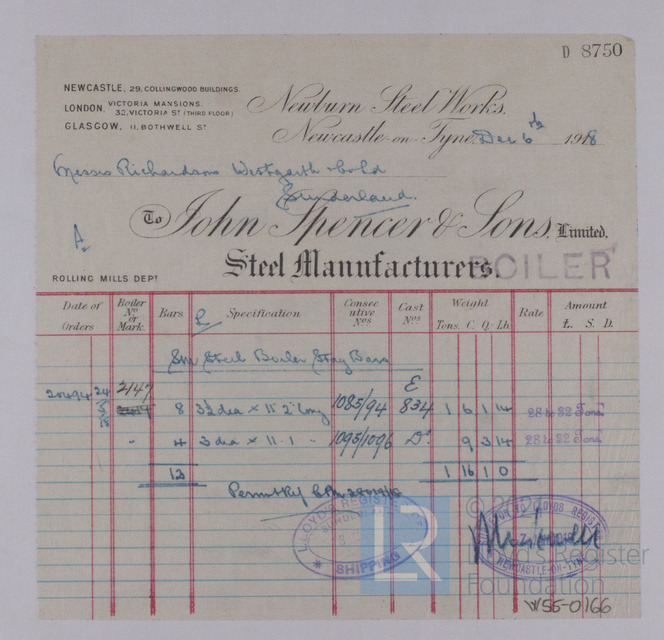 D 8750
NEWCASTLE, 29, COLLINGWOOD BUILDINGS.
LONDON, VICTORIA MANSIONS. 32, VICTORIA ST (THIRD FLOOR)
GLASGOW, 11, BOTHWELL ST
Newburn Steel Works.
Newcastle-on-Tyne, Dec 6th 1918
Messrs Richardsons Westgarth & Co Ld
Sunderland.
To John Spencer & Sons, Limited,
Steel Manufacturers.
BOILER
ROLLING MILLS DEPT
Date of Orders Boiler No or Mark. Bars. Specification Consecutive Nos Cast Nos Weight Tons. C. Q. Lb Rate Amount £. S. D.
SM Steel Boiler Stay Bars
2147 E
8 3½ dia × 11' 2" long 1085/94 834 1 6 1 14 28 to 32 Tons
" 4 3 dia × 11 . 1 " 1095/1096 Do 9 3 14 28 to 32 Tons
12 1 16 1 0
LLOYD'S REGISTER
SHIPPING
LR
© 202
Lloyd's Register
Foundation
SURVEYOR TO LLOYDS REGISTER
NEWCASTLE-ON-TYNE
W55-0166